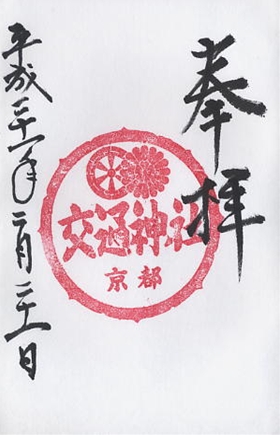 奉拝
交通神社
京都
平成二十一年二月二十一日